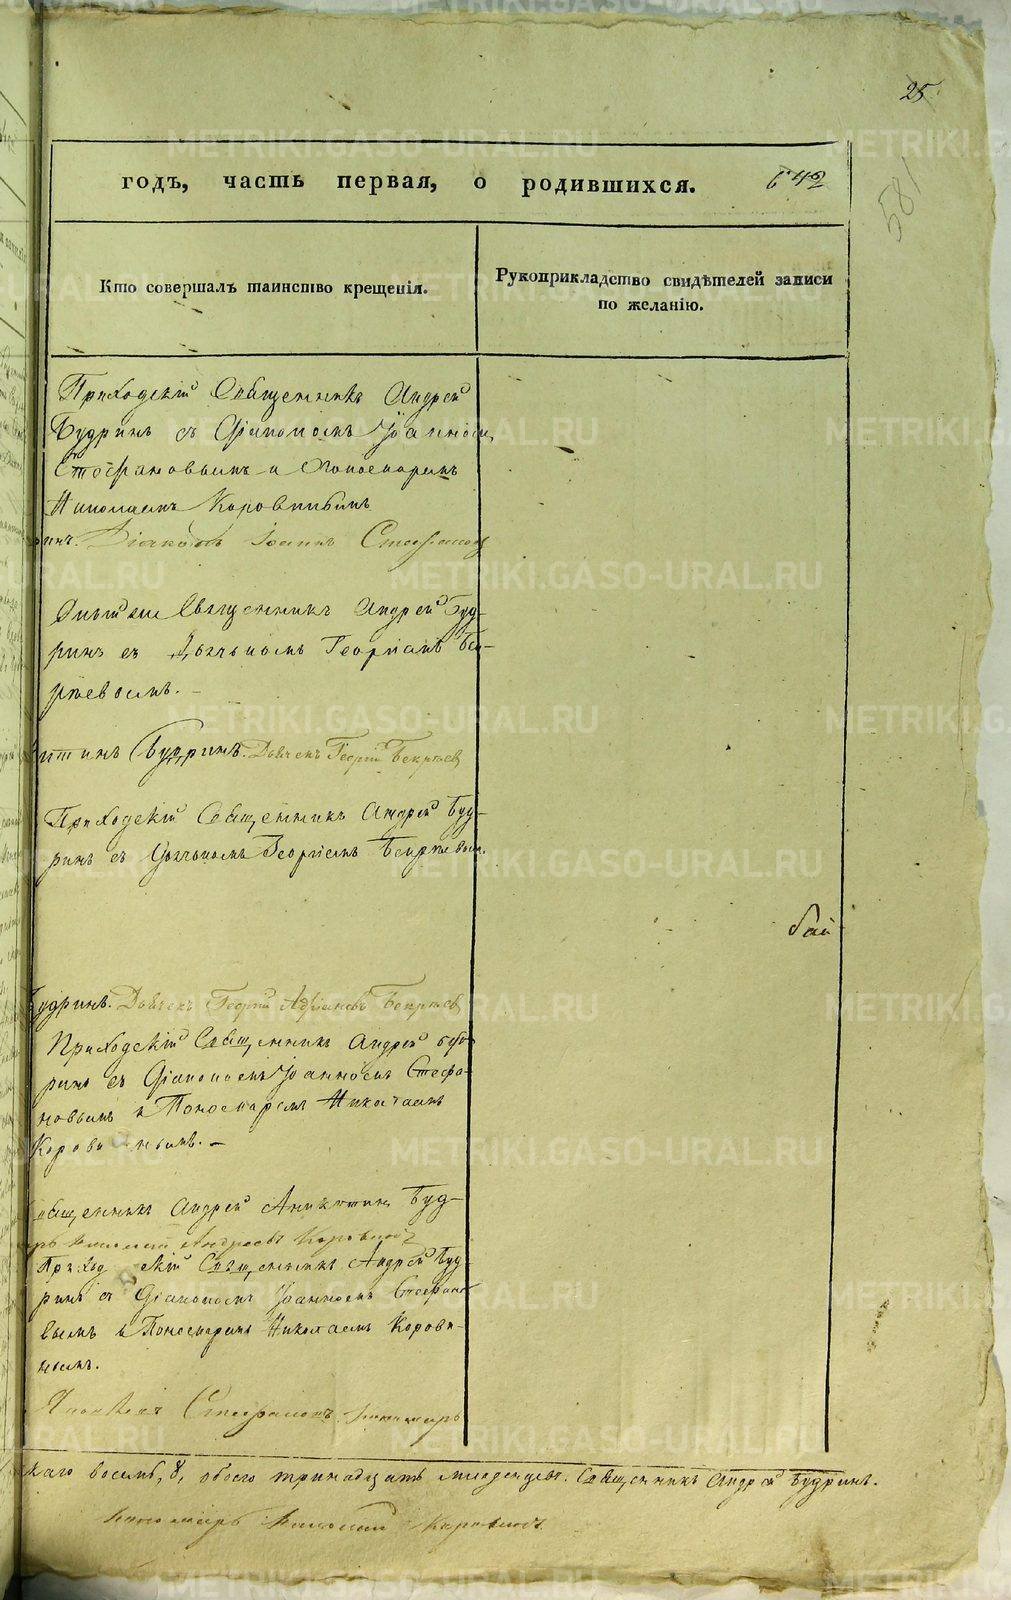 25
годъ, часть первая, о родившихся. 642
581
Кто совершалъ таинство крещенія.
Рукоприкладство свидѣтелей записи
по желанію.
Приходскій Священникъ Андрей
Будринъ съ Діакономъ Іоанномъ
Стефановымъ и Пономаремъ
Николаемъ Коровинымъ
ринъ. Діаконъ Іоаннъ Стефановъ
Священникъ Андрей Буд-
ринъ съ Дьячькомъ Георгіемъ Бек-
рѣевомъ.
Будринъ. Дьячекъ Георгій Бекрѣевъ
Приходскій Священникъ Андрей Буд-
ринъ съ Дьячькомъ Георгіемъ
бай
Будринъ. Дьячекъ Георгій Адріановъ Бекрѣевъ
Приходскій Священникъ Андрей Буд-
ринъ съ Діакономъ Іоанномъ Стефа-
новымъ и Пономаремъ Николаемъ
Коровинымъ. –
Священникъ Андрей Аникитинъ Буд-
Николай Андреевъ Коровинъ
Приходскій Священникъ Андрей Буд-
ринъ съ Діакономъ Іоанномъ Стефано-
вымъ и Пономаремъ Николаемъ Корови-
нымъ.
Стефановъ пономарь
каго восемь, 8, обоего тринадцать младенцевъ. Священникъ Андрей Будринъ.
пономарь Николай Коровинъ
METRIKI.GASO-URAL.RU